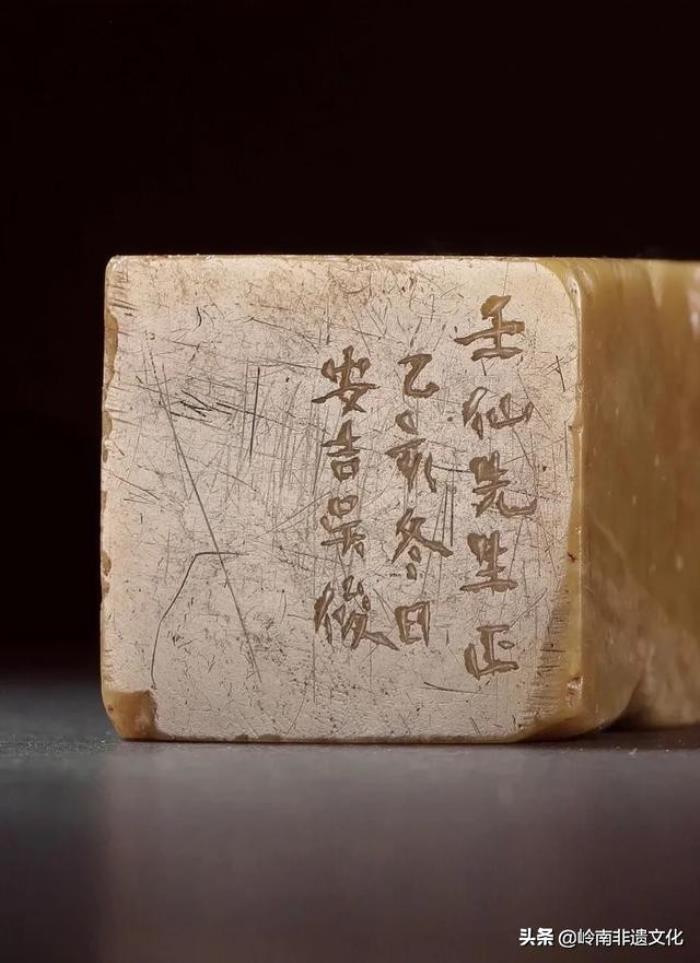 壬仙先生正
乙亥冬日
安吉吴俊
头条 @岭南非遗文化